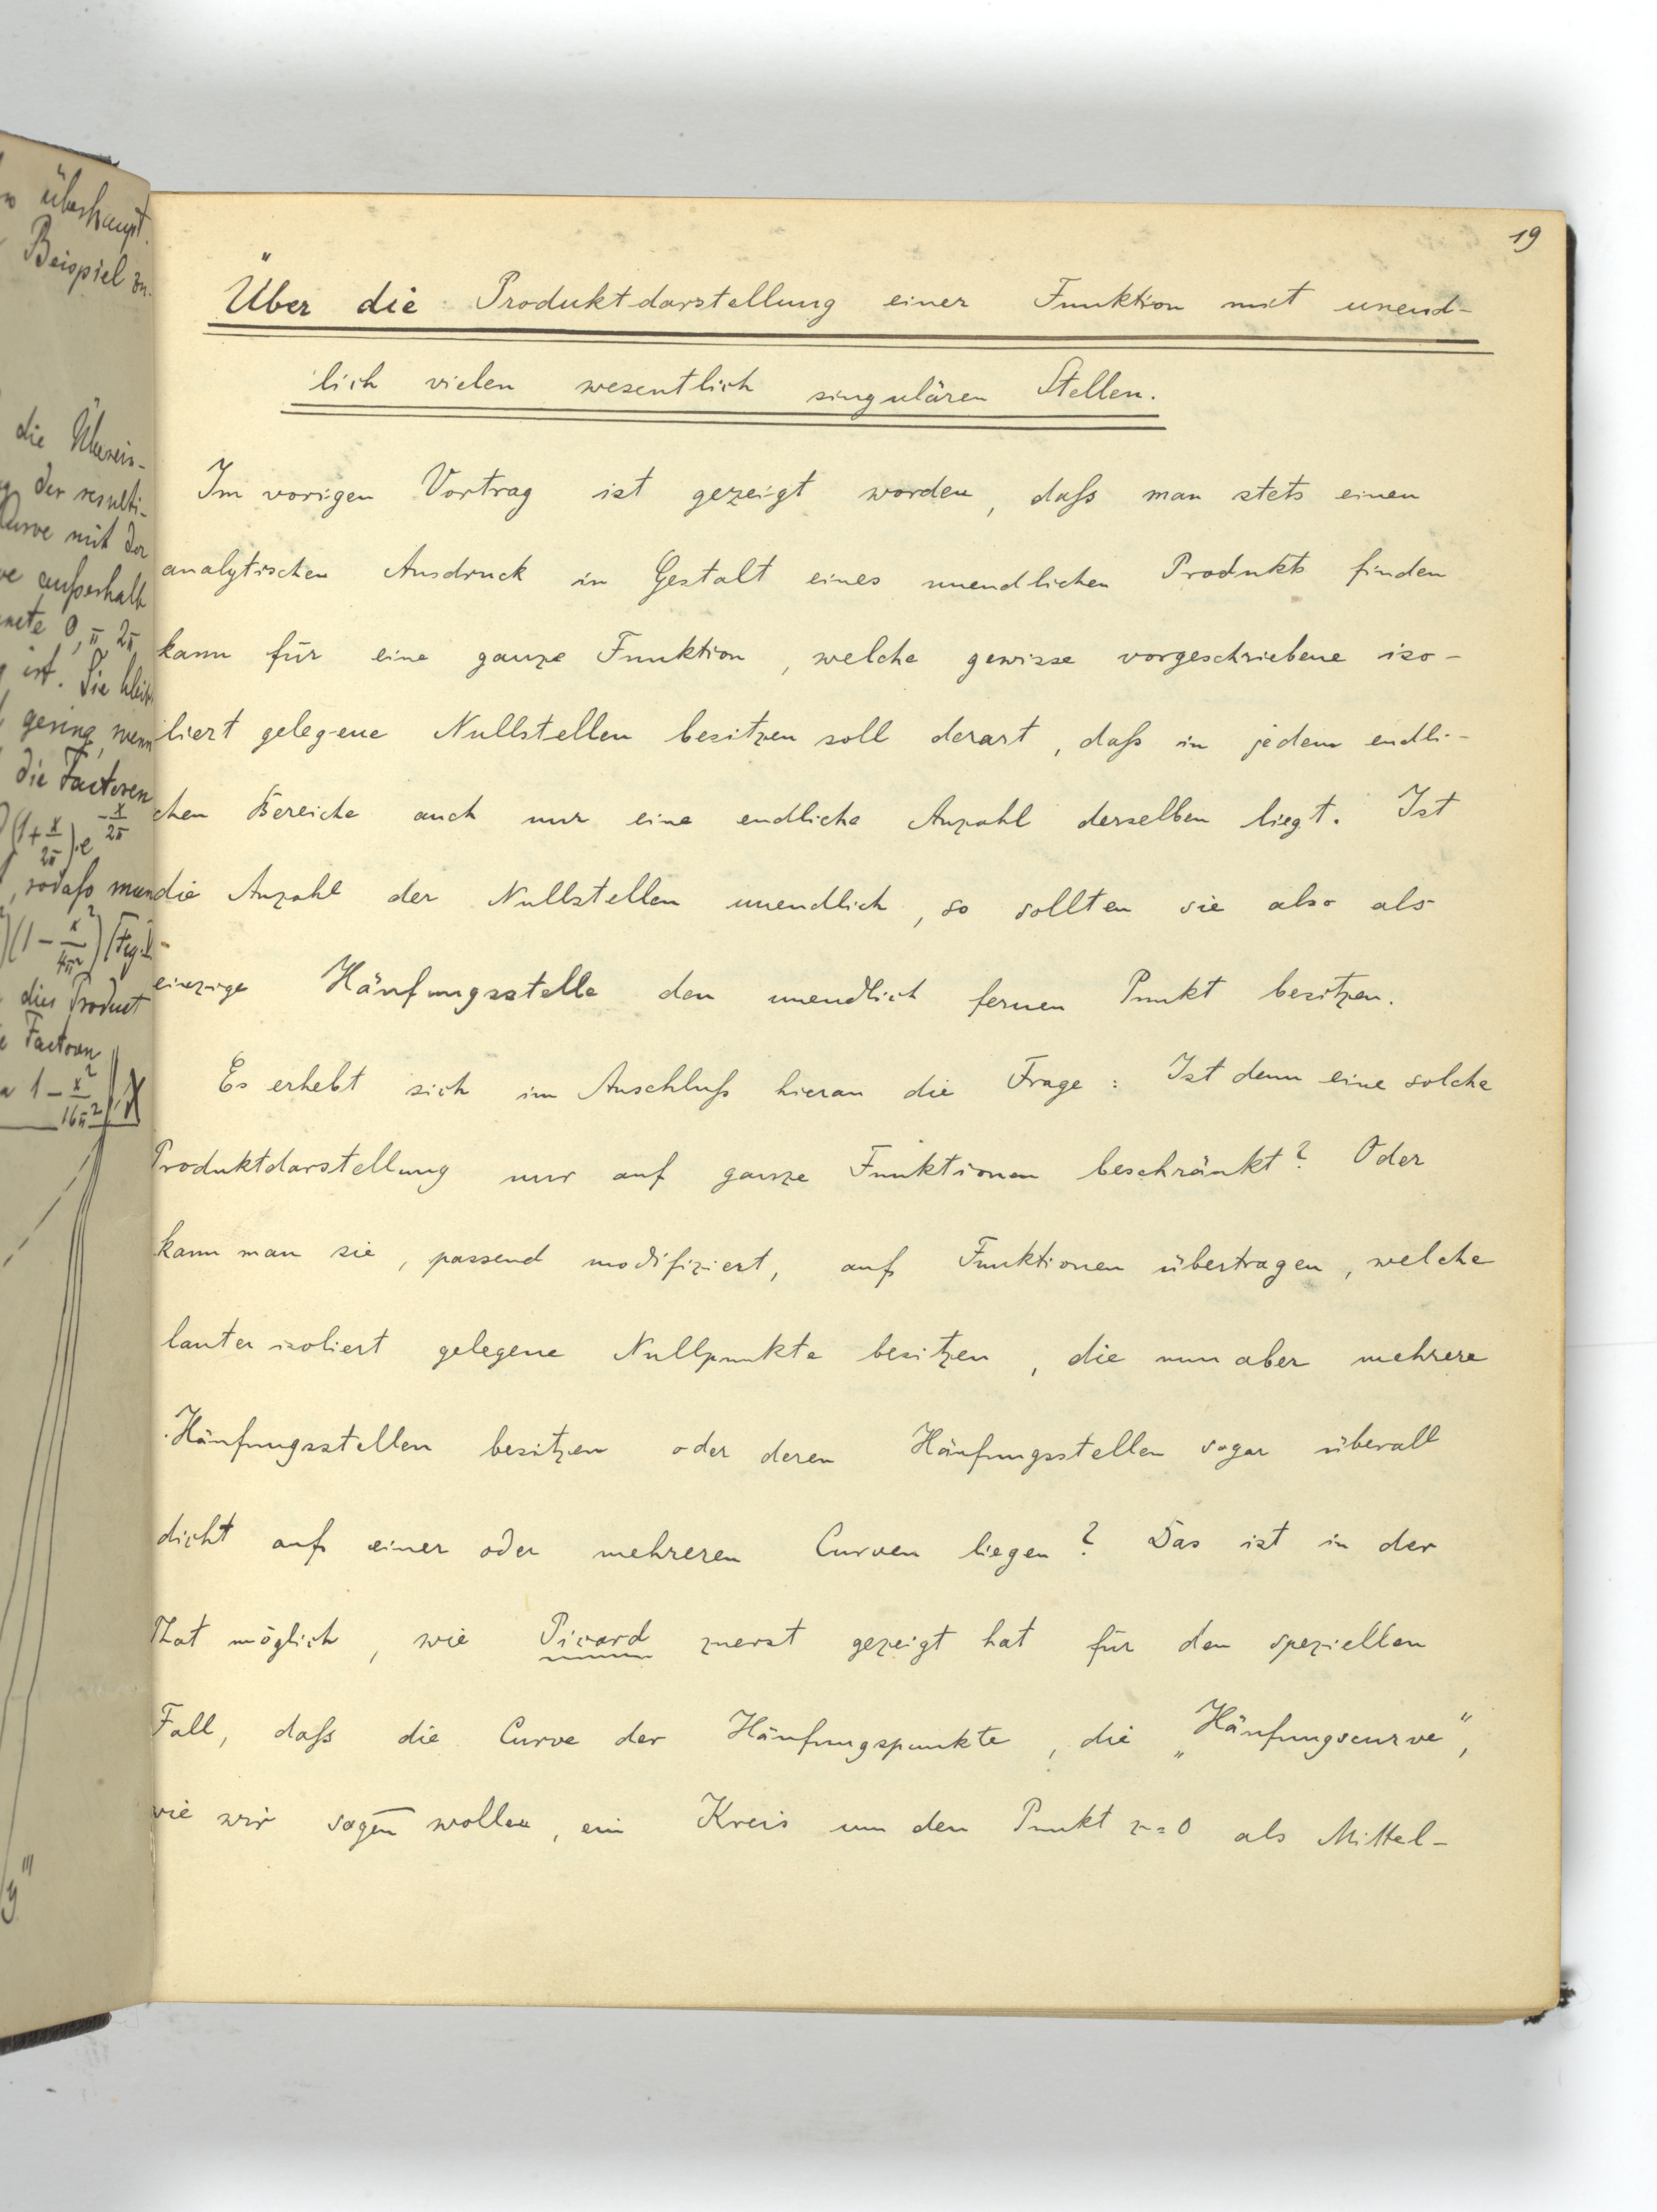 19
Über die Produktdarstellung einer Funktion mit unend-
lich vielen wesentlich singulären Stellen.
Im vorigen Vortrag ist gezeigt worden, daß man stets einen
analytischen Ausdruck in Gestalt eines unendlichen Produkts finden
kann für eine ganze Funktion, welche gewisse vorgeschriebene iso-
liert gelegene Nullstellen besitzen soll derart, daß in jedem endli-
chen Bereiche auch nur eine endliche Anzahl derselben liegt. Ist
die Anzahl der Nullstellen unendlich, so sollten sie also als
einzige Häufungsstelle den unendlich fernen Punkt besitzen.
Es erhebt sich im Anschluß hieran die Frage: Ist denn eine solche
Produktdarstellung nur auf ganze Funktionen beschränkt? Oder
kann man sie, passend modifiziert, auf Funktionen übertragen, welche
lauter isoliert gelegene Nullpunkte besitzen, die nun aber mehrere
Häufungsstellen besitzen oder deren Häufungsstellen sogar überall
dicht auf einer oder mehreren Curven liegen? Das ist in der
That möglich, wie Picard zuerst gezeigt hat für den speziellen
Fall, daß die Curve der Häufungspunkte, die „Häufungscurve",
wie wir sagen wollen, ein Kreis um den Punkt z=0 als Mittel-
überhaupt.
Beispiel
die Überein-
der resulti-
Curve mit der
außerhalb
0, π, 2π
ist. Sie bleibt
gering, wenn
die Factoren
(1+x/2π).e^{-x/2π}
, sodaß man
(1-x²/4π²) (Fig.
dies Product
Factoren
1-x²/16π²